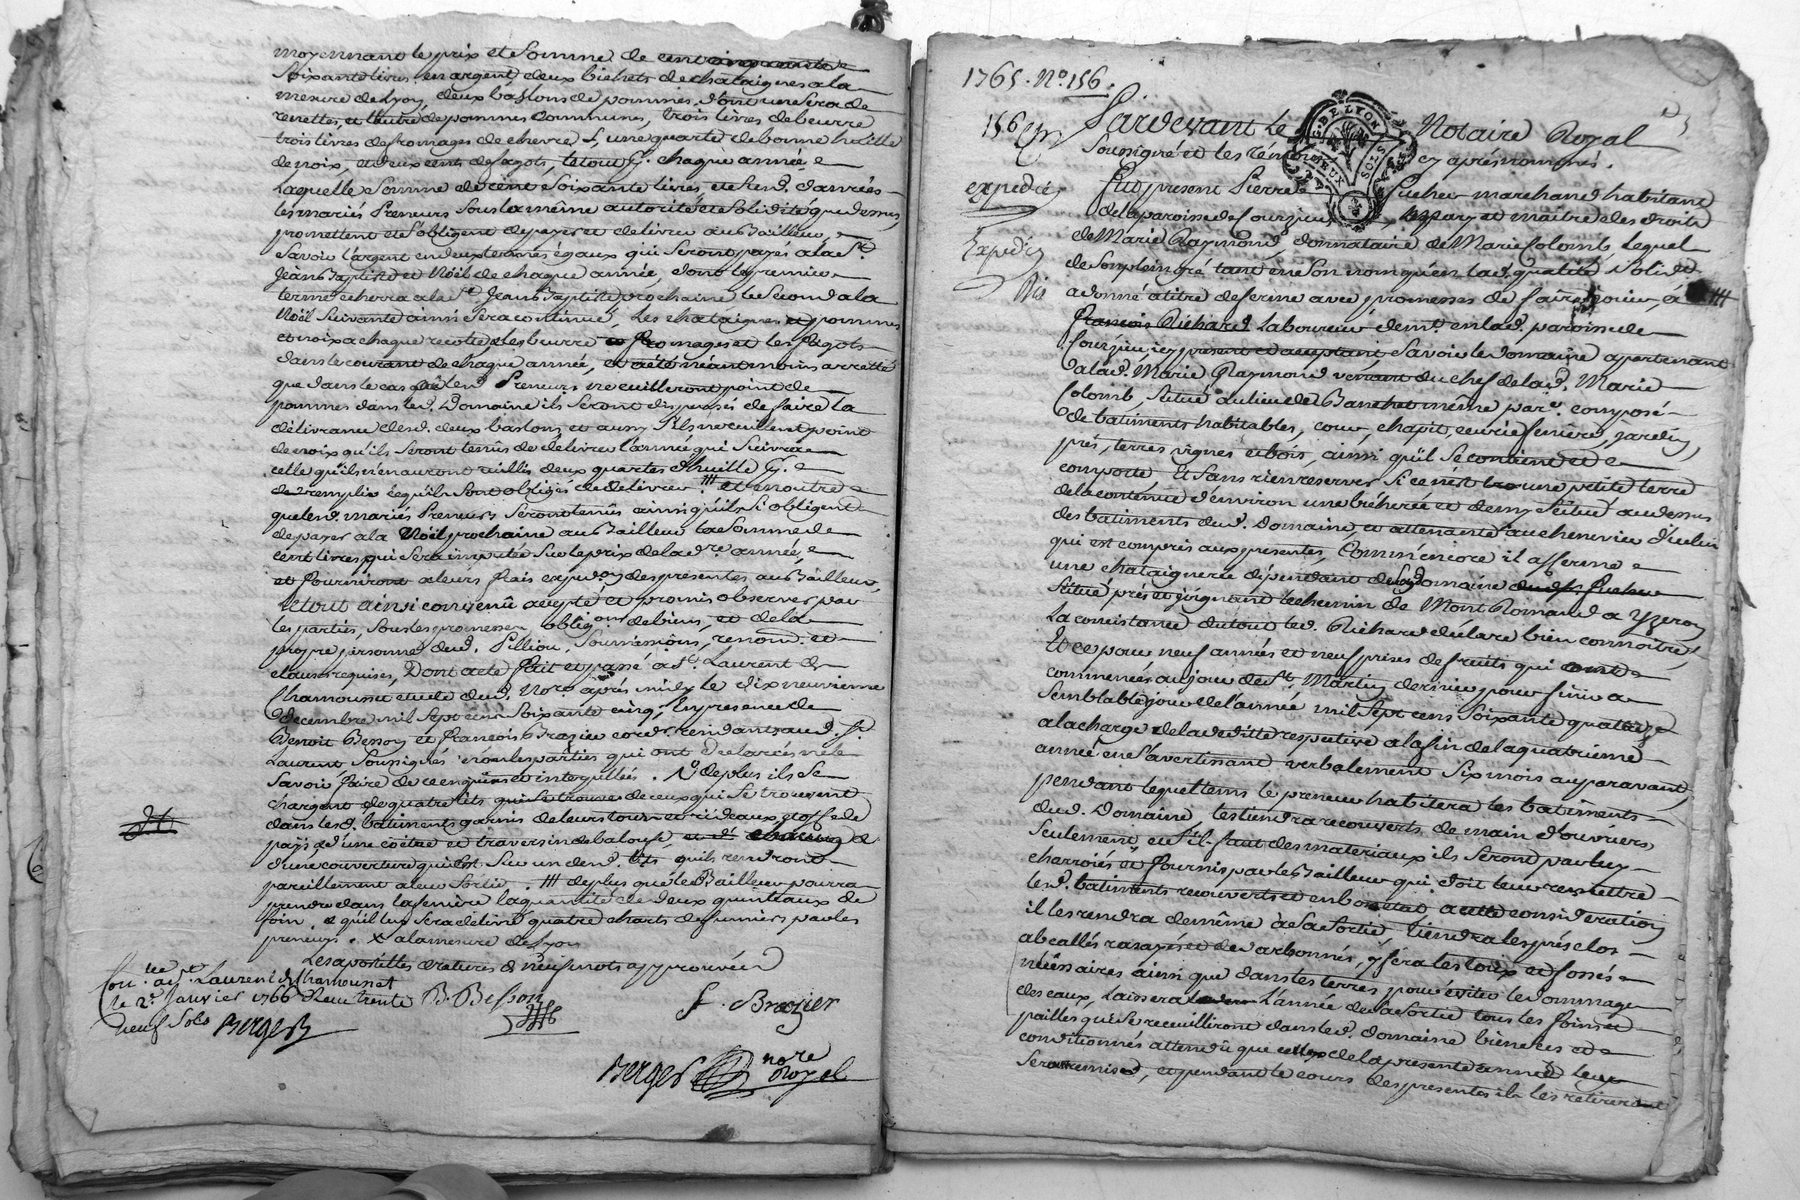 moyennant le prix et somme de cent cinquante
soixante livres en argent, deux bichets de chataignes a la
mesure de Lyon, deux baslons de pommes, dont une sera de
renettes, et l'autre de pommes communes, trois livres de beurre
trois livres de fromages de chevre, une quarte de bonne huille
de noix, et deux cents de fagots, le tout chaque année
Laquelle somme de cent soixante livres, et lesd. danrées
les mariés Preneurs sous la même autorité et solidité que dessus,
promettent et s'obligent de payer et delivrer au Bailleur,
Savoir l'argent en deux termes égaux qui seront payés a la St.
Jean Baptiste et Noël de chaque année, dont le premier
terme echerra a la St. Jean Baptiste prochaine le second a la
Noël suivante ainsi sera continué, Les chataignes et pommes
et noix a chaque recolte, Les beurre et fromages et les fagots
dans le courant de chaque année, et a été néant moins arretté
que dans le cas où lesd. Preneurs ne cuilleront point de
pommes dans led. Domaine ils seront dispensés de faire la
délivrance desd. deux baslons, et aussy s'ils ne cuillent point
de noix qu'ils seront tenus de délivrer l'année qui suivra
celle qu'ils n'en auront cuillis deux quartes d'huille
de remplis ce qu'ils sont obligés de delivrer et en outre
que lesd. mariés Preneurs seront tenus ainsi qu'ils s'i obligent
de payer a la Noël prochaine au Bailleur la somme de
cent livres qui sera imputée sur le prix de la d.re année,
et fourniront a leurs frais expedon des presentes au Bailleur,
Le tout ainsi convenû accepté et promis observer par
les parties, sous les promesses, obligons de biens, et de la
propre personne dud. Pilliou, soumissions, renond. et
clauses requises, Dont acte fait et passé a St. Laurent de
Chamousset etude dud. Nore après midy le dix neuvieme
decembre mil sept cens soixante cinq, En presence de
Benoit Besson et françois Brazier cordr. residants aud. St.
Laurent soussignés non les parties qui ont declarés ne le
savoir faire de ce enquis et interpellés. No. de plus ils se
chargent de quatre lits qui se trouvent
dans les d. batiments garnis de leurs tours et rideaux etoffe de
païs, d'une coëtre et traversin de balouffe, chacun &
d'une couverture qui est sur un desd. lits qu'ils rendront
pareillement a leur sortie. de plus que le Bailleur pourra
prendre dans la feniere la quantité de deux quintaux de
foin, et qu'il luy sera delivré quatre charts de fumiers par les
preneurs. X a la mesure de Lyon
Les apostilles et ratures de neuf mots approuvées
Con.lee a St. Laurent de Chamousset
le 2e. Janvier 1766 Reçu trente
neuf sols Berger
B. Besson
f. Brazier
Berger nore Royal
1765. No. 156.
156
expedié
Expedié
Pardevant Le Notaire Royal
G. DE LYON
DEUX SOLS
Soussigné et les témoins cy après nommés.
Fut present Pierre Pucher marchand habitant
de la paroisse de Courzieu, le pary et maitre des droits
de Marie Raymond, donnataire de Marie Colomb, Lequel
de son plein gré tant en son nom qu'en la d. qualité solid.
a donné a titre de ferme avec promesses de faire jouir, á
françois Richard Laboureur demt. en lad. paroisse de
Courzieu, icy present et acceptant, Savoir le domaine apartenant
a la d. Marie Raymond venant du chef de la d. Marie
Colomb, situé au lieu de Banchet même parse. composé
de batiments habitables, cour, chapit, ecurie, feniere, jardin,
prés, terres vignes et bois, ainsi qu'il se contient et
comporte Et sans rien reserver si ce n'est une petite terre
de la contenue d'environ une bicherée et demy située au dessus
des batiments dud. Domaine, et attenante au chenevier d'icelui
qui est compris aux presentes, Comme encore il afferme
une chataigneree dépendant dud. Domaine
situé près et joignant le chemin de Mont Romand a Yzeron
La consistance du tout led. Richard déclare bien connoitre,
Et ce pour neuf années et neuf prises de fruits qui
commencés au jour de St. Martin dernier pour finir a
semblable jour de l'année mil sept cens soixante quatorze
a la charge de la deditte respective a la fin de la quatrieme
année en s'avertissant verbalement six mois auparavant,
pendant lequel tems le preneur habitera les batiments
dud. Domaine, les tiendra recouverts de main d'ouvriers
seulement, et s'il faut des materiaux ils seront par luy
charroiés et fournis par le Bailleur qui doit leur remettre
led. batiments recouverts et en bon etat, a cette consideration
il les rendra de même a sa sortie, tiendra les prés clos
abeallés rasayés et dex arbonnés, y fera les toux et fossés
nécessaires ainsi que dans les terres pour éviter le dommage
des eaux, laissera L'année de sa sortie tous les foins et
pailles qui se recuilliront dans led. domaine bien secs et
conditionnés attendû que celles de la presente année leur
seront remises, et pendant le cours des presentes il les retireront